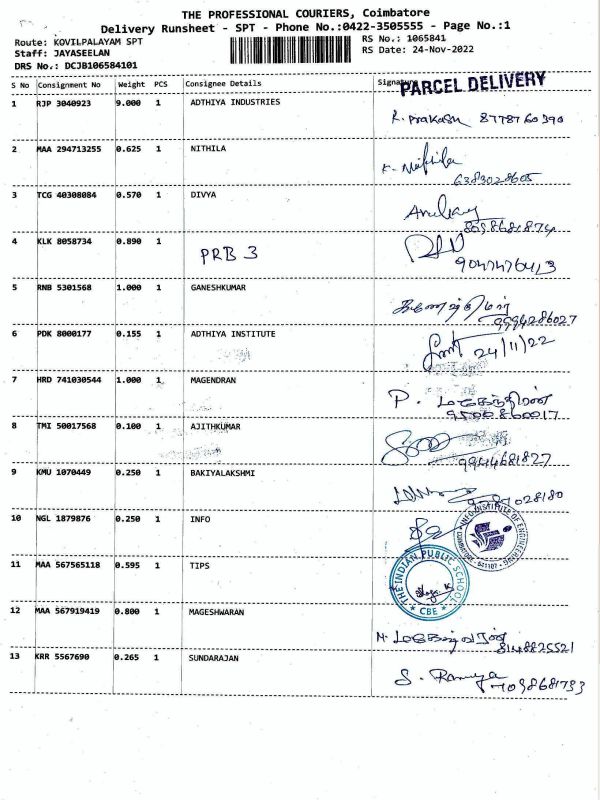 THE PROFESSIONAL COURIERS, Coimbatore
Delivery Runsheet - SPT - Phone No.:0422-3505555 - Page No.:1
Route: KOVILPALAYAM SPT
RS No.: 1065841
Staff: JAYASEELAN
RS Date: 24-Nov-2022
DRS No.: DCJB106584101
S No Consignment No Weight PCS Consignee Details Signature
PARCEL DELIVERY
1 RJP 3040923 9.000 1 ADHIYA INDUSTRIES
R. Prakash 8778760390
2 MAA 294713255 0.625 1 NITHILA
K. Nithila
6383028605
3 TCG 40308084 0.570 1 DIVYA
8098681874
4 KLK 8058734 0.890 1
PRB 3
5 RNB 5301568 1.000 1 GANESHKUMAR
9994286027
6 PDK 8000177 0.155 1 ADTHIYA INSTITUTE
24/11/22
7 HRD 741030544 1.000 1 MAGENDRAN
P. மகேந்திரன்
9500860017
8 TMI 50017568 0.100 1 AJITHKUMAR
9944681827
9 KMU 1070449 0.250 1 BAKIYALAKSHMI
10 NGL 1879876 0.250 1 INFO
INFO INSTITUTE OF ENGINEERING
COIMBATORE - 641107
11 MAA 567565118 0.595 1 TIPS
THE INDIAN PUBLIC SCHOOL
CBE
12 MAA 567919419 0.800 1 MAGESHWARAN
8148825521
13 KRR 5567690 0.265 1 SUNDARAJAN
S. Ramya
7098681793